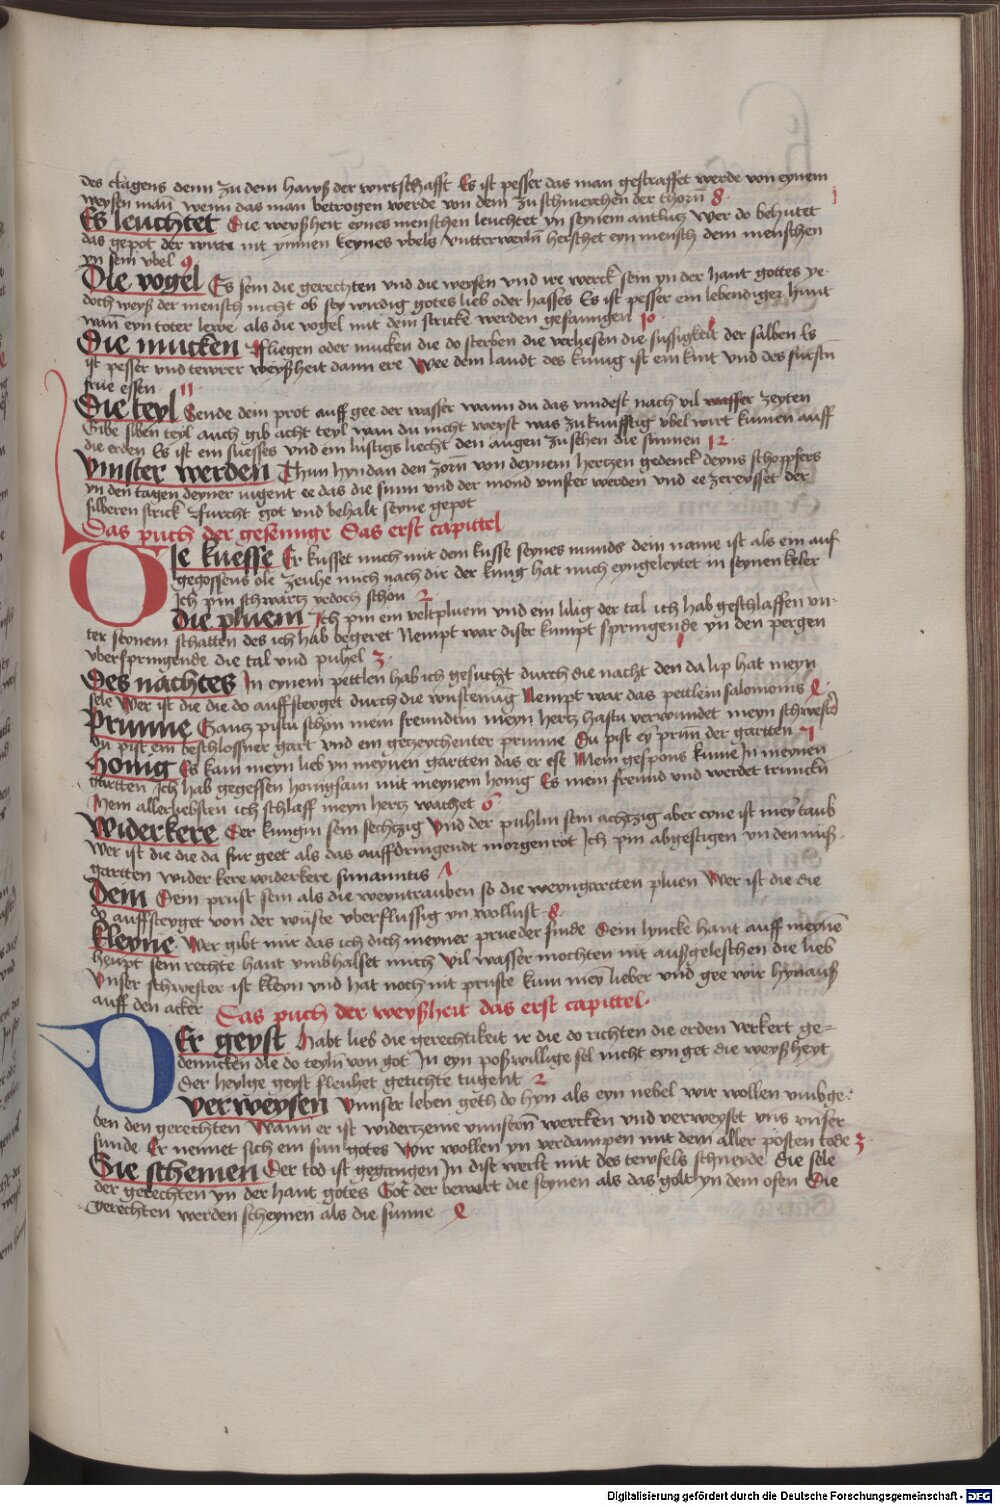 des clagens denn zu dem hawß der wirtschafft Es ist pesser das man gestraffet werde von eynem
weysen man wenn das man betrogen werde von dem zu schmeychen der thorn 8
Es leuchtet Die weyßheit eynes menschen leuchtet yn seynem antlutz Wer do behutet
das gepot der wirt nit ynnen keynes vbels vnterweyln herschet eyn mensch dem menschen
yn sein vbel 9
Die vogel Es sein die gerechten vnd die weysen vnd ire werck sein yn der hant gottes ye
doch weyß der mensch nicht ob sey wirdig gotes lieb oder hasses Es ist pesser ein lebendiger hunt
wan eyn toter lewe als die vogel mit dem stricke werden gefanngen 10
Die mucken Fliegen oder mucken die do sterben die verliesen die sussigkeit der salben Es
ist pesser vnd tewrer weyßheit dann ere Wee dem landt des kunig ist ein kint vnd des fursten
frue essen 11
Die teyl Sende dem prot auff gee der wasser wann du das vindest nach vil wasser zeyten
Gibe siben teyl auch gib acht teyl wan du nicht weyst was zukunfftig vbel wirt kumen auff
die erden Es ist ein suesses vnd ein lustigs liecht den augen zu sehen die sunnen 12
Vinster werden Thun hyndan den zorn von deynem hertzen gedenck deyns schoppfers
yn den tagen deyner iugent ee das die sunn vnd der mond vinster werden vnd ee zereysset der
silberen strick Furcht got vnd behalt seyne gepot
Das puch der gesennge Das erst capittel
Die kuesse Er kusset mich mit dem kusse seynes munds dein name ist als ein auf
gegossens ole zeuhe mich nach dir der kunig hat mich eyngeleytet in seynen keler
Ich pin schwartz yedoch schon 2
Die pluem Ich pin ein veltpluem vnd ein lilig der tal ich hab geschlaffen vn
ter seynem schatten des ich hab begeret Nempt war diser kumpt springende yn den pergen
vberspringende die tal vnd puhel 3
Des nachtes In eynem pettlen hab ich gesucht durch die nacht den da lip hat meyn
sele Wer ist die die do auffsteyget durch die wustenung Nempt war das pettlein salomonis 4
Prunne Gantz pistu schon mein freundin meyn hertz hastu verwundet meyn schwester
du pist ein beschlossner gart vnd ein gezeychenter prunne Du pist ey prun der gartten 5
Honig Es kam meyn lieb yn meynen gartten das er ess Mein gespons kume In meynen
gartten Ich hab gegessen honigsam mit meynem honig Es mein freund vnd werdet truncken
Mein allerliebsten ich schlaff meyn hertz wachet 6
Widerkere Der kungin sein sechtzig Vnd der puhlin sein achtzig aber eyne ist mey taub
Wer ist die die da fur geet als das auffdringendt morgenrot Ich pin abgestigen yn den nuß
gartten wider kere widerkere sunamitis 7
Dem Dein prust sein als die weyntrauben so die weyngartten pluen Wer ist die die
do auffsteyget von der wuste vberflussig yn wollust 8
Kleyne Wer gibt mir das ich dich meyner prueder finde Dein lyncke hant auff meynen
heupt sein rechte hant vmbhalset mich Vil wasser mochten nit außgeleschen die lieb
Vnser schwester ist kleyn vnd hat noch nit pruste kum mey lieber vnd gee wir hynauß
auff den acker Das puch der weyßheit das erst capittel
Der geyst Habt lieb die gerechtikeit ir die do richten die erden Verkert ge
dencken die do teyln von got In eyn poßwillige sel nicht eynget die weyßheyt
Der heylge geyst fleuhet getichte tugent 2
Verweysen Vnnser leben geth do hyn als eyn nebel wir wollen vmbge
den den gerechten Wann er ist widertzeme vnnsern wercken vnd verweyset vns vnser
sunde Er nennet sich ein sun gotes Wir wollen yn verdampen mit dem aller posten tode 3
Sie schemen Der tod ist gegangen In dise werlt mit des tewfels schneyde Die sele
der gerechten yn der hant gotes Got der bewert die seynen als das golt yn dem ofen Die
gerechten werden scheynen als die sunne 4
Digitalisierung gefördert durch die Deutsche Forschungsgemeinschaft - DFG